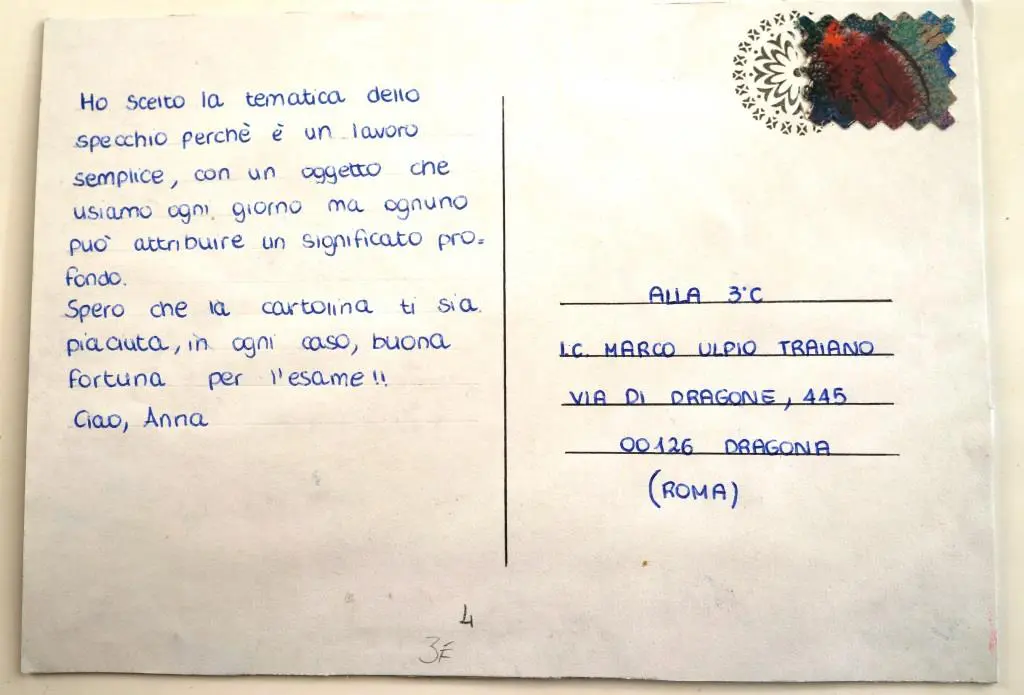 Ho scelto la tematica dello
specchio perchè è un lavoro
semplice, con un oggetto che
usiamo ogni giorno ma ognuno
può attribuire un significato pro=
fondo.
Spero che la cartolina ti sia
piaciuta, in ogni caso, buona
fortuna per l'esame!!
Ciao, Anna
ALLA 3°C
I.C. MARCO ULPIO TRAIANO
VIA DI DRAGONE, 445
00126 DRAGONA
(ROMA)
4
3E